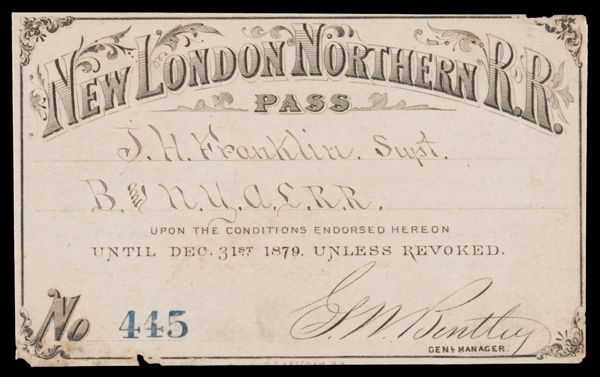 NEW LONDON NORTHERN R.R.
PASS
J. H. Franklin. Supt.
B. & N.Y. A. L. R. R.
UPON THE CONDITIONS ENDORSED HEREON
UNTIL DEC. 31ST 1879. UNLESS REVOKED.
No 445
G. W. Bentley
GENL MANAGER.